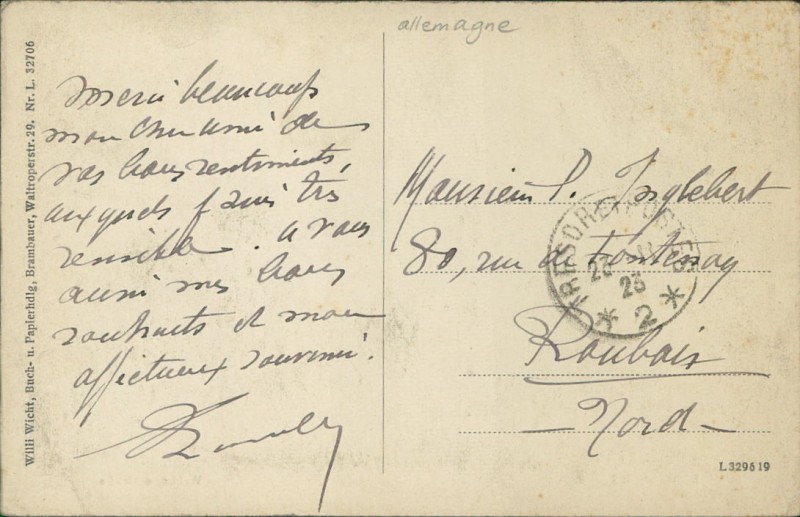 allemagne
Merci beaucoup
mon cher ami de
vos bons sentiments,
auxquels je suis très
sensible. A vous
aussi mes bons
souhaits et mon
affectueux souvenir.
Monsieur P. Inglebert
80, rue de Fontenoy
Roubaix
— Nord —
TRESOR ET POSTES
23
23
* 2 *
L 329619
Willi Wicht, Buch- u. Papierhdlg, Brambauer, Waltroperstr. 29. Nr. L. 32706